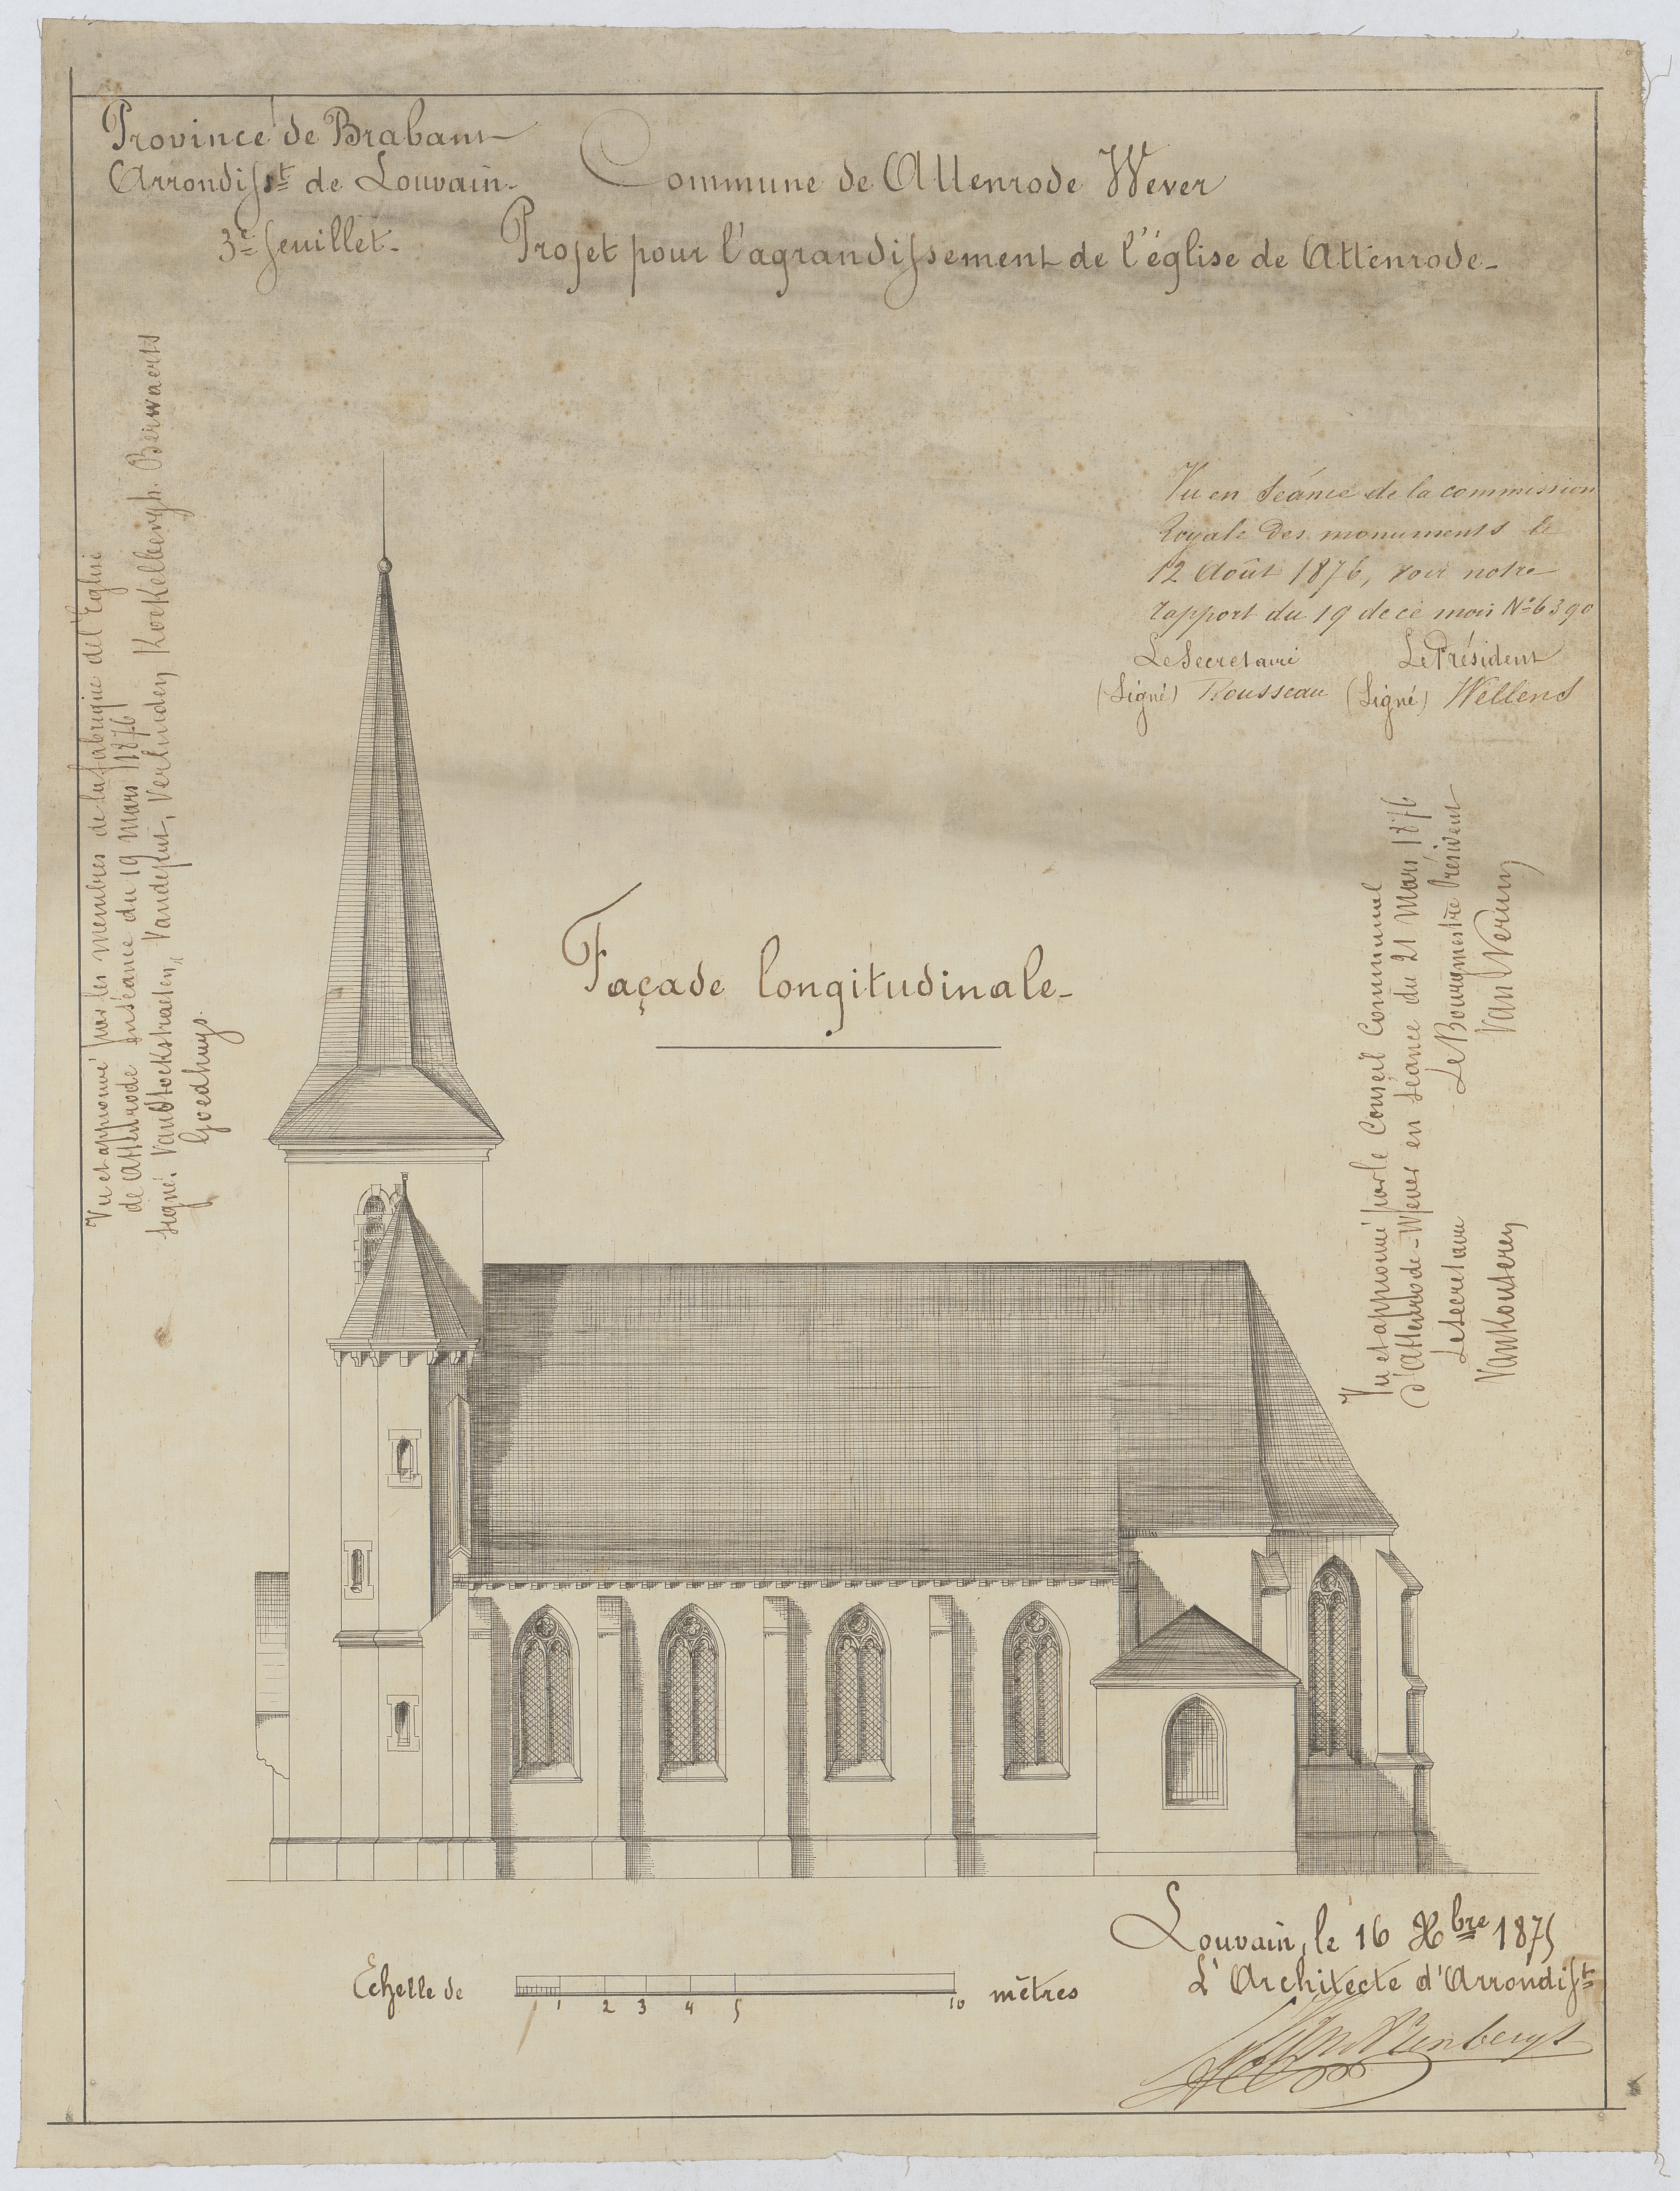 Province de Brabant
Arrondisst de Louvain.
3e feuillet.
Commune de Attenrode Wever
Projet pour l'agrandissement de l'église de Attenrode.
Vu et approuvé par les membres de la fabrique de l'Eglise
de Attenrode en séance du 19 mars 1876
signé. Vandereckstraeten, Verlinden, Koekelbergh. Berwaerts
Goedhuys.
Vu en séance de la commission
Royale des monuments le
12 Août 1876, voir notre
rapport du 19 de ce mois No 6390
Le Secretaire Le Président
(Signé) Rousseau (Signé) Wellens
Façade longitudinale.
Vu et approuvé par le Conseil Communal
d'Attenrode-Wever en séance du 21 Mars 1876
Le secretaire Le Bourgmestre Président
Echelle de 1 2 3 4 5 10 mètres
Louvain, le 16 Xbre 1875
L'Architecte d'Arrondisst